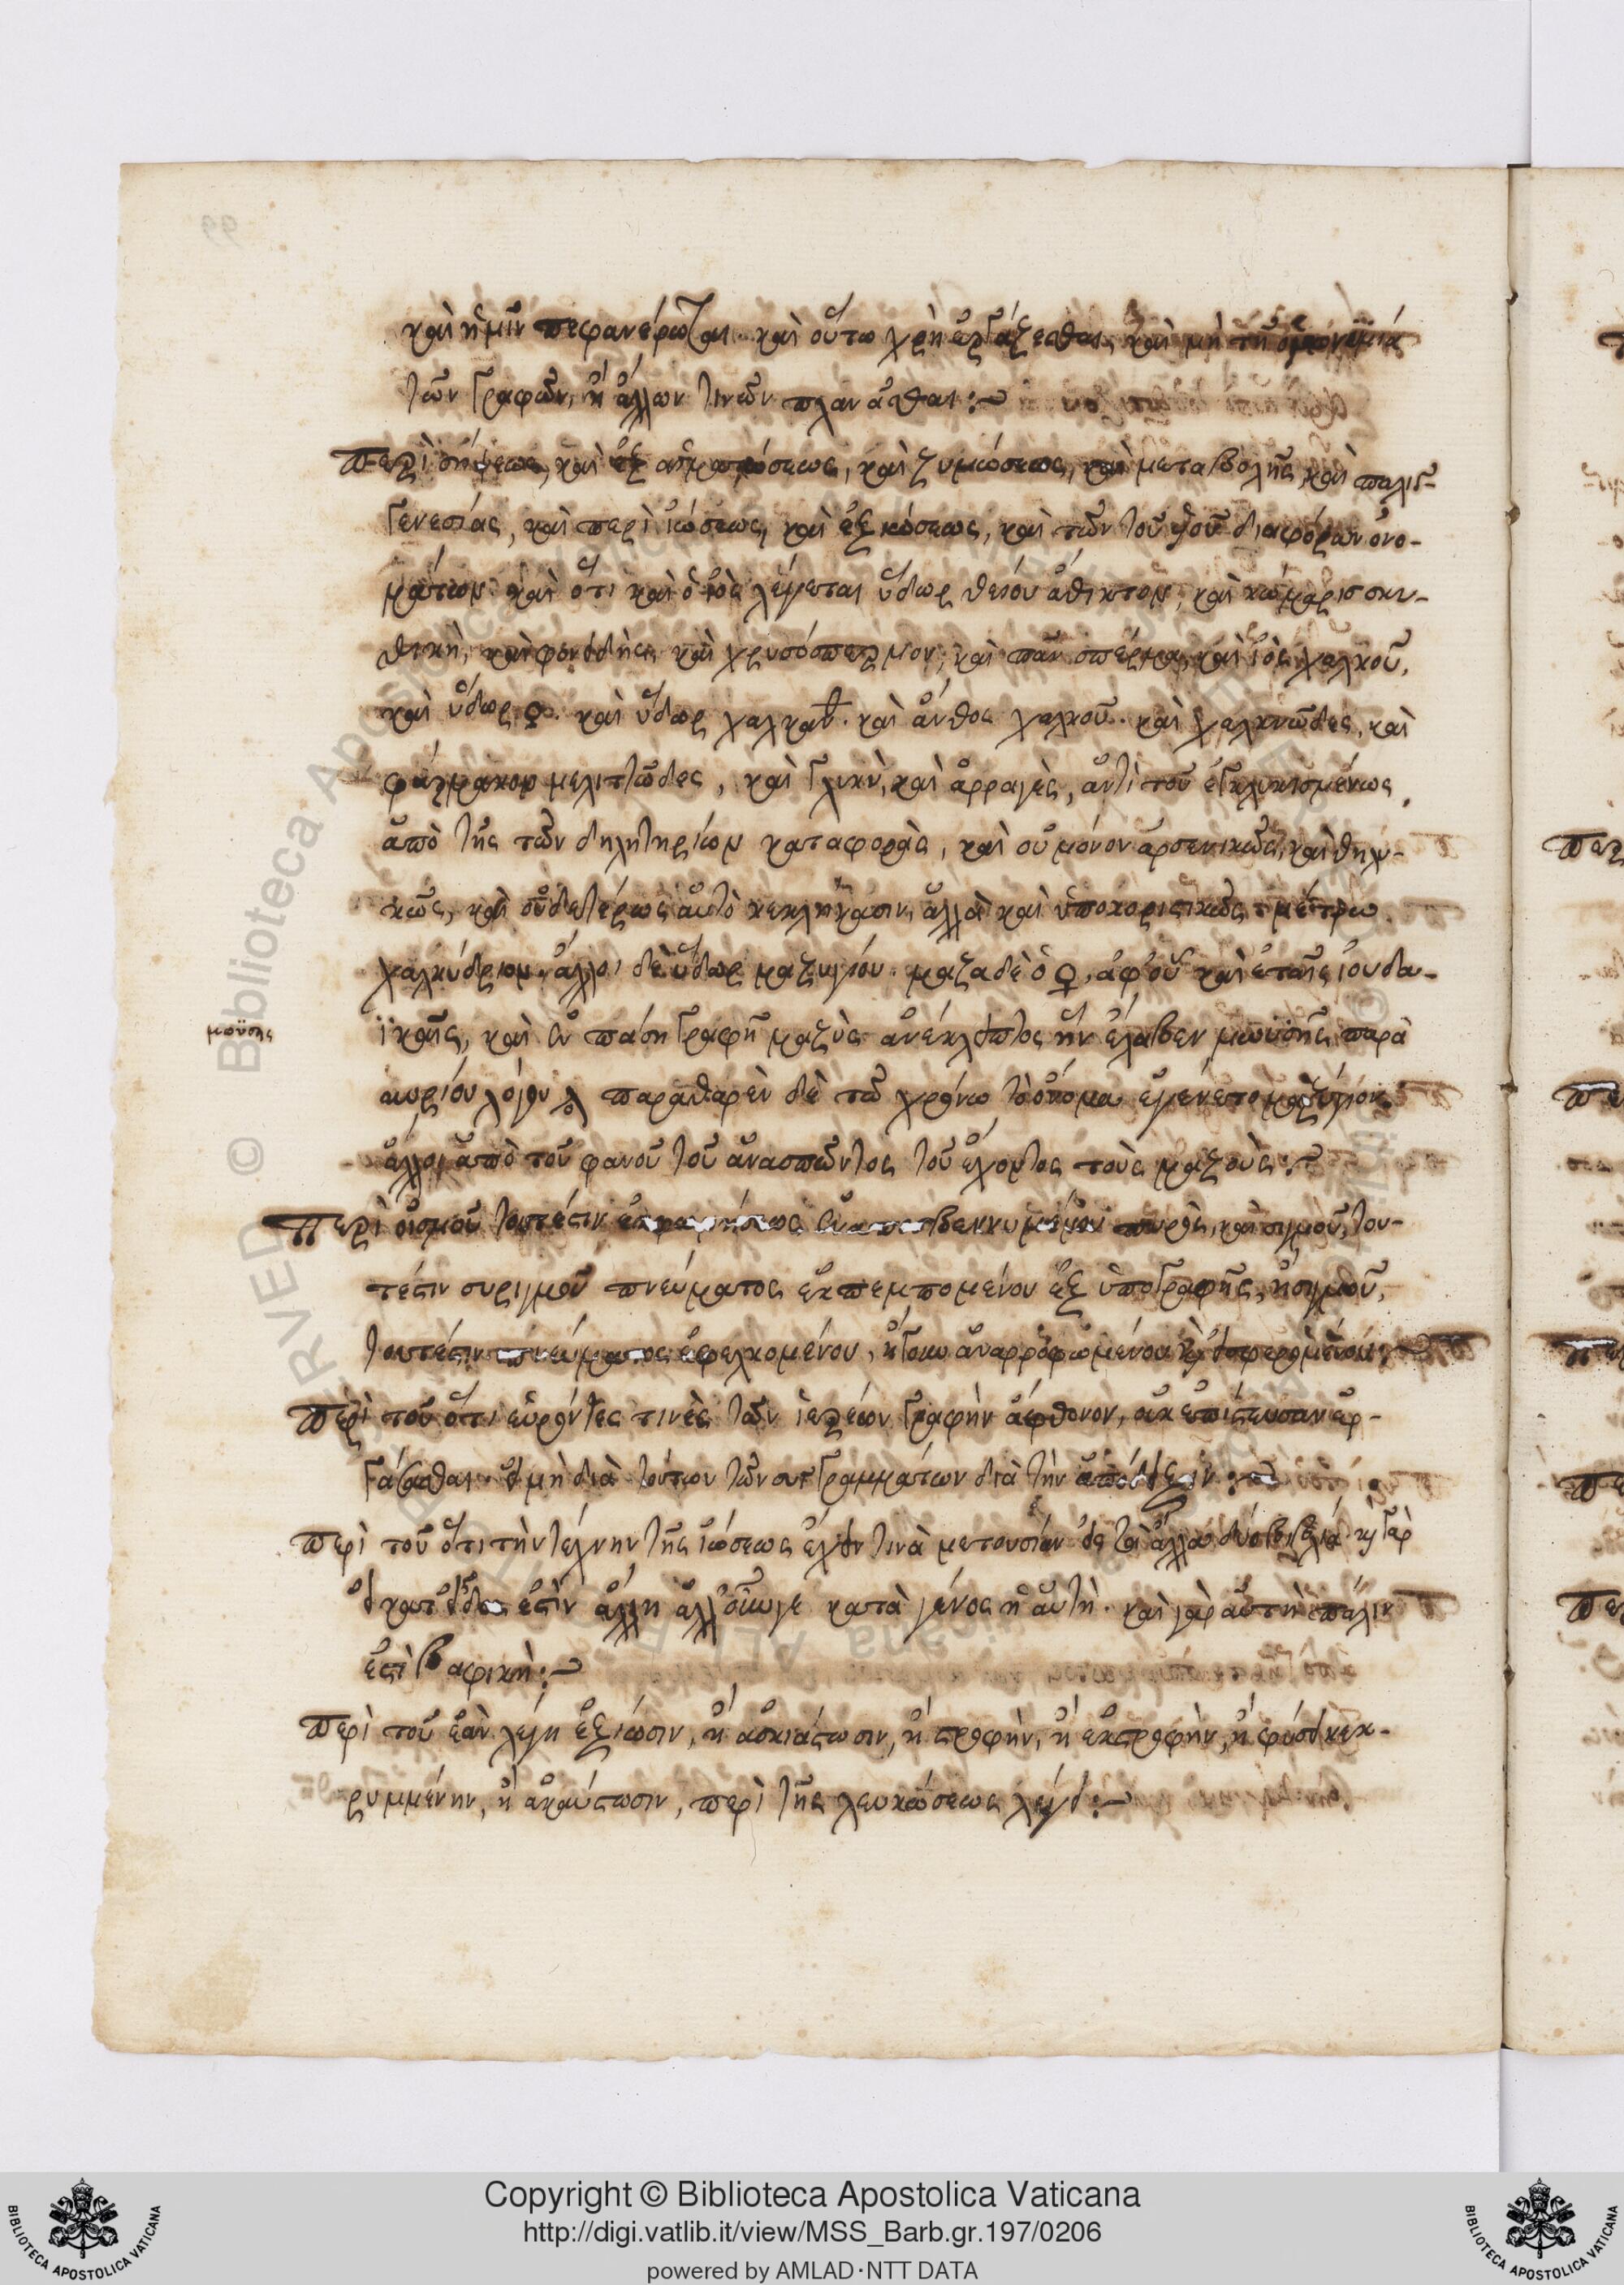 καὶ ἡμῖν πεφανέρωται. καὶ οὕτω χρὴ ἐργάζεσθαι, καὶ μὴ τῇ ὁμωνυμίᾳ
τῶν γραφῶν, ἢ ἄλλων τινῶν πλανᾶσθαι:
περὶ σήψεως, καὶ ἐξαιματώσεως, καὶ ζυμώσεως, καὶ μεταβολῆς καὶ παλιγ-
γενεσίας, καὶ περὶ ἰώσεως, καὶ ἐξιώσεως, καὶ τῶν τοῦ ἰοῦ διαφόρων ὀνο-
μάτων καὶ ὅτι καὶ ὁ ἰὸς λέγεται ὕδωρ θείου ἄθικτον, καὶ κώμαρις σκυ-
θικὴ, καὶ χρυσόσπερμον, καὶ πᾶν σπέρμα, καὶ ἰὸς χαλκοῦ,
καὶ ὕδωρ ♀. καὶ ὕδωρ χαλκάνθ. καὶ ἄνθος χαλκοῦ. καὶ χαλκνῶδες, καὶ
φάρμακον μελιτῶδες, καὶ γλυκὺ, καὶ ἀρραγὲς, ἀντὶ τοῦ ἐγκλυκισμένως,
ἀπὸ τῆς τῶν δηλητηρίων καταφορᾶς, καὶ οὐ μόνον ἀρσενικῶς, καὶ θηλυ-
κῶς, καὶ οὐδετέρως αὐτὸ κεκλήκασιν, ἀλλὰ καὶ ὑποκοριστικῶς μέτρω
χαλκύδριον. ἄλλοι δὲ ὕδωρ μαζυγίου. μάζα δὲ ὁ ♀, ἀφ' οὗ καὶ ἐταῖς ἰουδα-
ϊκαῖς, καὶ ἐν πάσῃ γραφῇ μαζὺς ἀνέκλειπτος ἣν ἔλαβεν μωϋσῆς παρὰ
μοϋσῆς
κυρίου λόγου παραφθαρὲν δὲ τῷ χρόνω τὸ ὄνομα ἐγένετο μαζύγιον.
ἄλλοι ἀπὸ τοῦ φανοῦ τοῦ ἀνασπῶντος τοῦ ἔχοντος τοὺς μαζούς:
Περὶ οἰσμοῦ τουτέστιν ἐναποσβεννυμένου πυρὸς, καὶ σιγμοῦ, του-
τέστιν συριγμοῦ πνεύματος ἐκπεμπομένου ἐξ ὑπογραφῆς, ἢ σιγμοῦ,
τουτέστιν πνεύματος ἐφελκομένου, ἤγουν ἀναρροφωμένου καὶ εἰσφερομένου:
περὶ τοῦ ὅτι εὑρόντες τινὲς τῶν ἱερέων γραφὴν ἄφθονον, οὐκ ἐπίστευσαν ἐρ-
γάσασθαι. εἰ μὴ διὰ τούτων τῶν συγγραμμάτων διὰ τὴν ἀπόδειξιν:
περὶ τοῦ ὅτι τὴν τέχνην τῆς ἰώσεως ἔχειν τινὰ μετουσίαν εἰς τὰ ἄλλα δύο βιβλία. καὶ γὰρ
εἰ κατ' εἶδος ἐστὶν ἄλλη ἀλλ' οὖν γε κατὰ γένος ἡ αὐτὴ. καὶ γὰρ αὐτὴ πάλιν
ἐστὶ βαφικὴ:
περὶ τοῦ ἐὰν λέγη ἐξίωσιν, ἢ ἀσκιάστωσιν, ἢ στροφὴν, ἢ ἐκστροφὴν, ἢ φύσιν κεκ-
ρυμμένην, ἢ ἀκαύστωσιν, περὶ τῆς λευκώσεως λέγει:
Copyright © Biblioteca Apostolica Vaticana
http://digi.vatlib.it/view/MSS_Barb.gr.197/0206
powered by AMLAD·NTT DATA